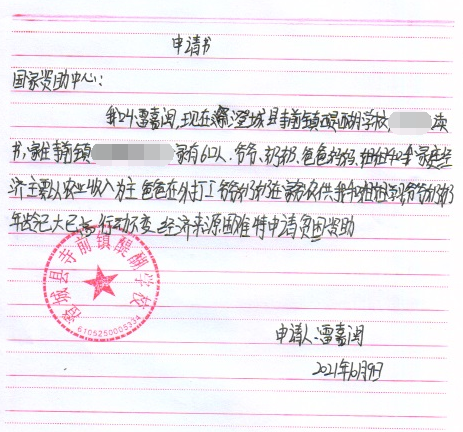 申请书
国家资助中心:
我叫雷嘉闽,现在澄城县寺前镇醍醐学校 读
书,家住寺前镇 家有6口人,爷爷、奶奶、爸爸妈妈、姐姐和我家庭经
济主要以农业收入为主爸爸在外打工爷爷奶奶在家务农供我和姐姐爷爷奶奶
年龄已大已 行动不变,经济来源困难特申请贫困资助
澄城县寺前镇醍醐学校
6105250005334
申请人:雷嘉闽
2021年6月9日